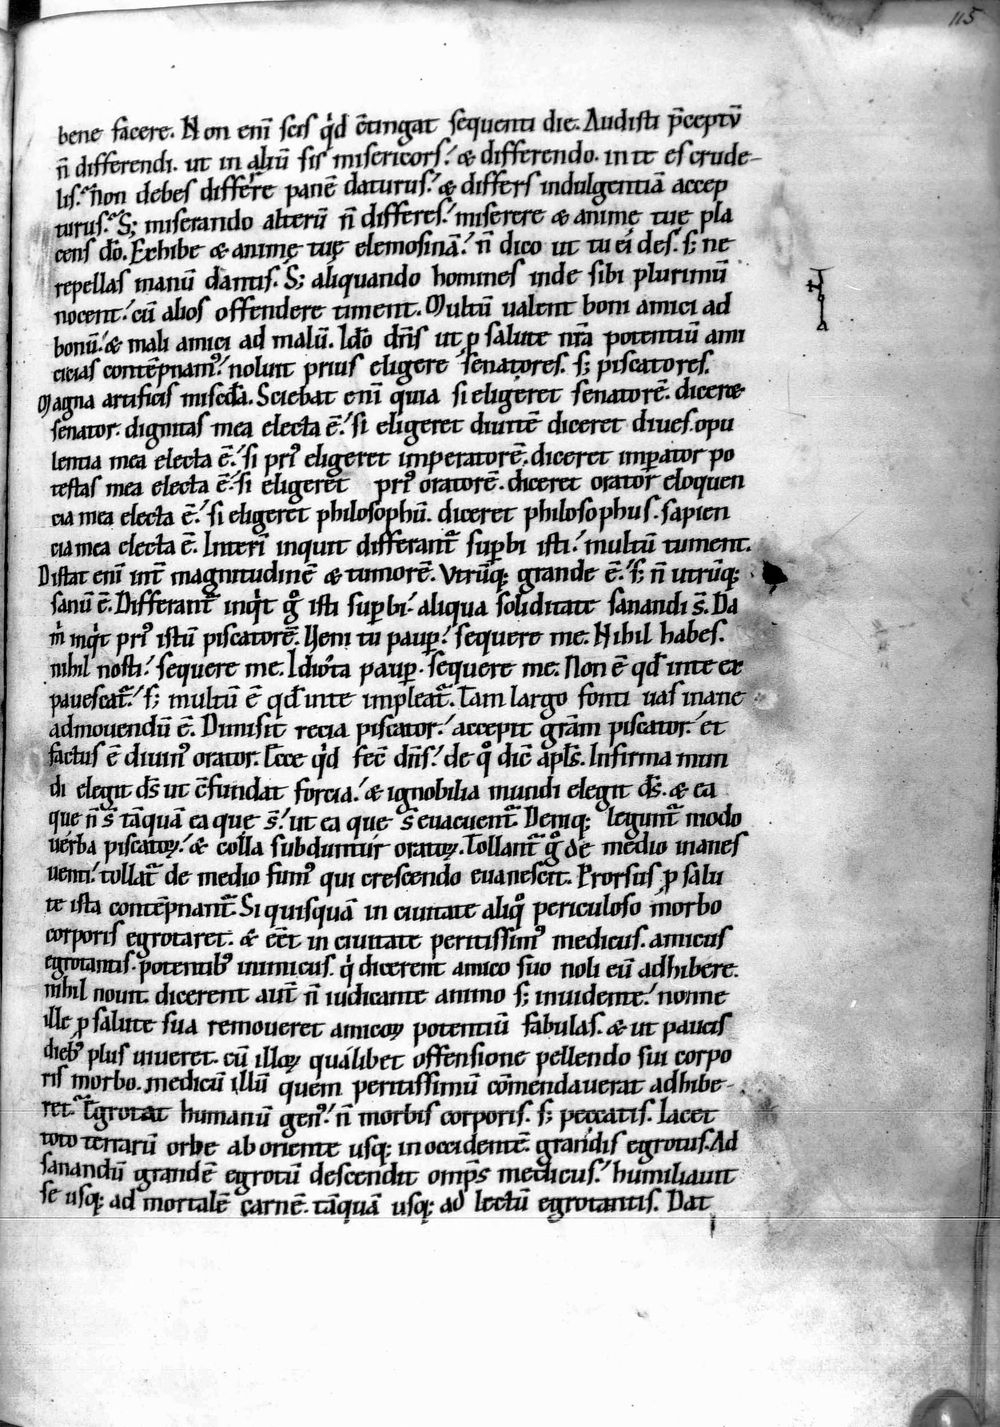 115
bene facere. Non eni᷑ scis qͥd ꝯtingat sequenti die. Audisti p̄ceptū
n̄ differendi. ut in aliū sis misericors.' & differendo. in te es crude-
lis. Non debes differre panē daturus.' & differs indulgentiā accep
turus. S; miserando alterū n̄ differes.' miserere & animę tuę pla
cens dō. Exhibe & animę tuę elemosinā.' n̄ dico ut tu ei des. s; ne
repellas manū dantis. S; aliquando homines inde sibi plurimū
nocent.' cū alios offendere timent. Multū ualent boni amici ad
bonū.' & mali amici ad malū. Idō dn̄s ut ꝑ salute nr̄a potentiū ami
cicias contēpnam᷒.' noluit prius eligere senatores. s; piscatores.
Magna artificis misc̄dia. Sciebat enī quia si eligeret senatorē. diceret
senator. dignitas mea electa ē.' si eligeret diuitē diceret diues. opu
lentia mea electa ē.' si pri᷒ eligeret imperatorē. diceret imꝑator po
testas mea electa ē.' si eligeret pri᷒ oratorē. diceret orator eloquen
cia mea electa ē.' si eligeret philosophū. diceret philosophus. sapien
cia mea electa ē. Interī inquit differant᷑ suꝑbi isti.' multū tument.
Distat enī int̄ magnitudinē & tumorē. Vtrūq; grande ē.' s; n̄ utrūq;
sanū ē. Differant᷑ inqͥt gͦ isti suꝑbi.' aliqua soliditate sanandi s̄. Da
m̍ inqͥt pri᷒ istū piscatorē. Veni tu pauꝑ.' sequere me. Nihil habes.
nihil nosti.' sequere me. Idiota pauꝑ. sequere me. Non ē qd̄ in te ex
pauescat᷑.' s; multū ē qd̄ in te impleat᷑. Tam largo fonti uas inane
admouendū ē. Dimisit recia piscator.' accepit gr̄am piscator.' et
factus ē diuin᷒ orator. Ecce qͥd fec̄ dn̄s.' de qͦ dic̄ apl̄s. Infirma mun
di elegit ds̄ ut ꝯfundat forcia.' & ignobilia mundi elegit ds̄. & ea
que n̄ s̄ tāquā ea que s̄.' ut ea que s̄ euacuent᷑. Deniq; legunt᷑ modo
uerba piscatoꝝ.' & colla subduntur oratoꝝ. Tollant᷑ gͦ de medio inanes
uenti.' tollat᷑ de medio fum᷒ qui crescendo euanescit. Prorsus ꝓ salu
te ista contēpnant᷑. Si quisquā in ciuitate aliqͦ periculoso morbo
corporis egrotaret. & eēt in ciuitate peritissim᷒ medicus. amicus
egrotantis. potentib᷒ inimicus. qͥ dicerent amico suo noli eū adhibere.
nihil nouit. dicerent aut̄ n̄ iudicante animo s; inuidente.' nonne
ille ꝓ salute sua remoueret amicoꝝ potentiū fabulas. & ut paucis
dieb᷒ plus uiueret. cū illoꝝ qualibet offensione pellendo sui corpo
ris morbo. medicū illū quem peritissimū cōmendauerat adhibe-
ret. Egrotat humanū gen᷒.' n̄ morbis corporis. s; peccatis. Iacet
toto terrarū orbe ab oriente usq; in occidentē. grandis egrotus. Ad
sanandū grandē egrotū descendit omp̄s medicus.' humiliauit
se usq; ad mortalē carnē. tāquā usq; ad lectū egrotantis. Dat